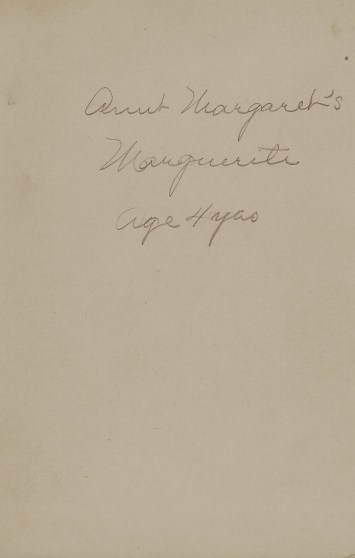 Aunt Margaret's
Marguerite
Age 4 yrs